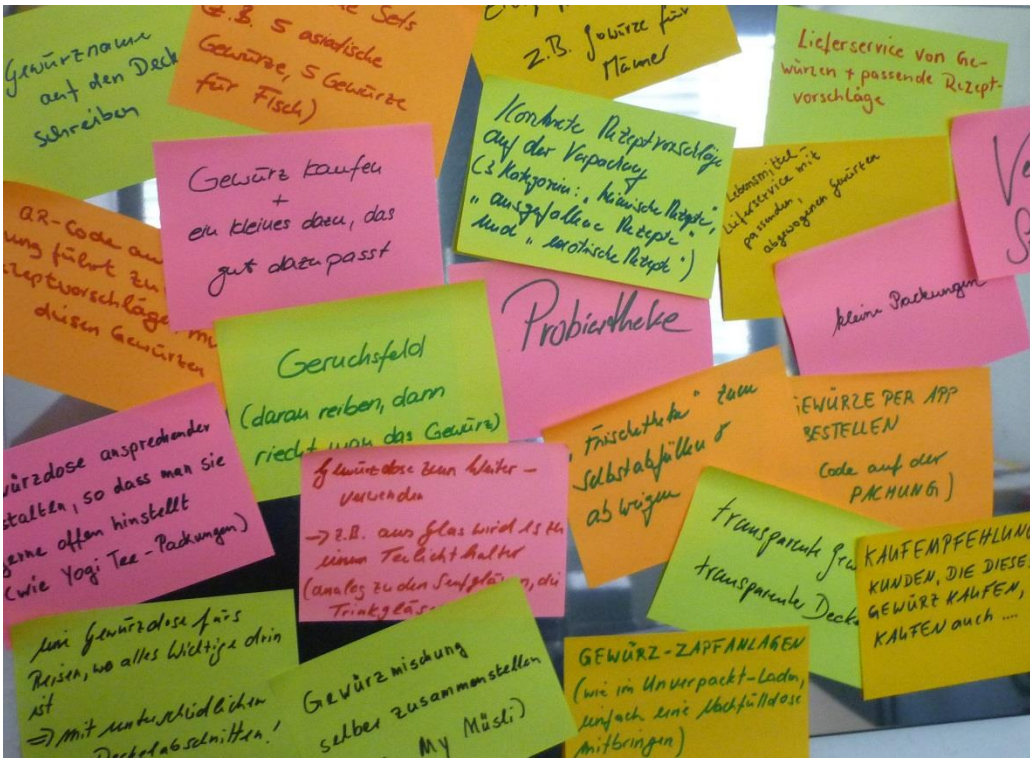 Gewürzname
auf den Deck
schreiben
Sets
(z.B. 5 asiatische
Gewürze, 5 Gewürze
für Fisch)
z.B. Gewürze für
Männer
Lieferservice von Ge-
würzen + passende Rezept-
vorschläge
Gewürz kaufen
+
ein kleines dazu, das
gut dazu passt
Konkrete Rezeptvorschläge
auf der Verpackung
(3 Kategorien: "heimische Rezepte",
"ausgefallene Rezepte"
und "exotische Rezepte")
Lebensmittel-
lieferservice mit
passenden,
abgewogenen Gewürzen
kleine Packungen
QR-Code au
ung führt zu
zeptvorschläge mi
diesen Gewürzen
Geruchsfeld
(daran reiben, dann
riecht man das Gewürz)
Probiertheke
"Frischetheke" zum
selbstabfüllen &
abwiegen
EWÜRZE PER APP
BESTELLEN
Code auf der
PACKUNG)
würzdose ansprechender
stalten, so dass man sie
gerne offen hinstellt
(wie Yogi Tee-Packungen)
Gewürzdose zum Weiter-
verwenden
→ z.B. aus Glas wird es zu
einem Teelichthalter
(analog zu den Senfgläsern, die
Trinkgläse
transparente Gew
transparenter Decke
KAUFEMPFEHLUNG
KUNDEN, DIE DIESES
GEWÜRZ KAUFEN,
KAUFEN auch ....
eine Gewürzdose fürs
Reisen, wo alles Wichtige drin
ist
⇒ mit unterschiedlichen
Deckelabschnitten!
Gewürzmischung
selber zusammenstellen
My Müsli)
GEWÜRZ-ZAPFANLAGEN
(wie im Unverpackt-Laden,
einfach eine Nachfülldose
mitbringen)